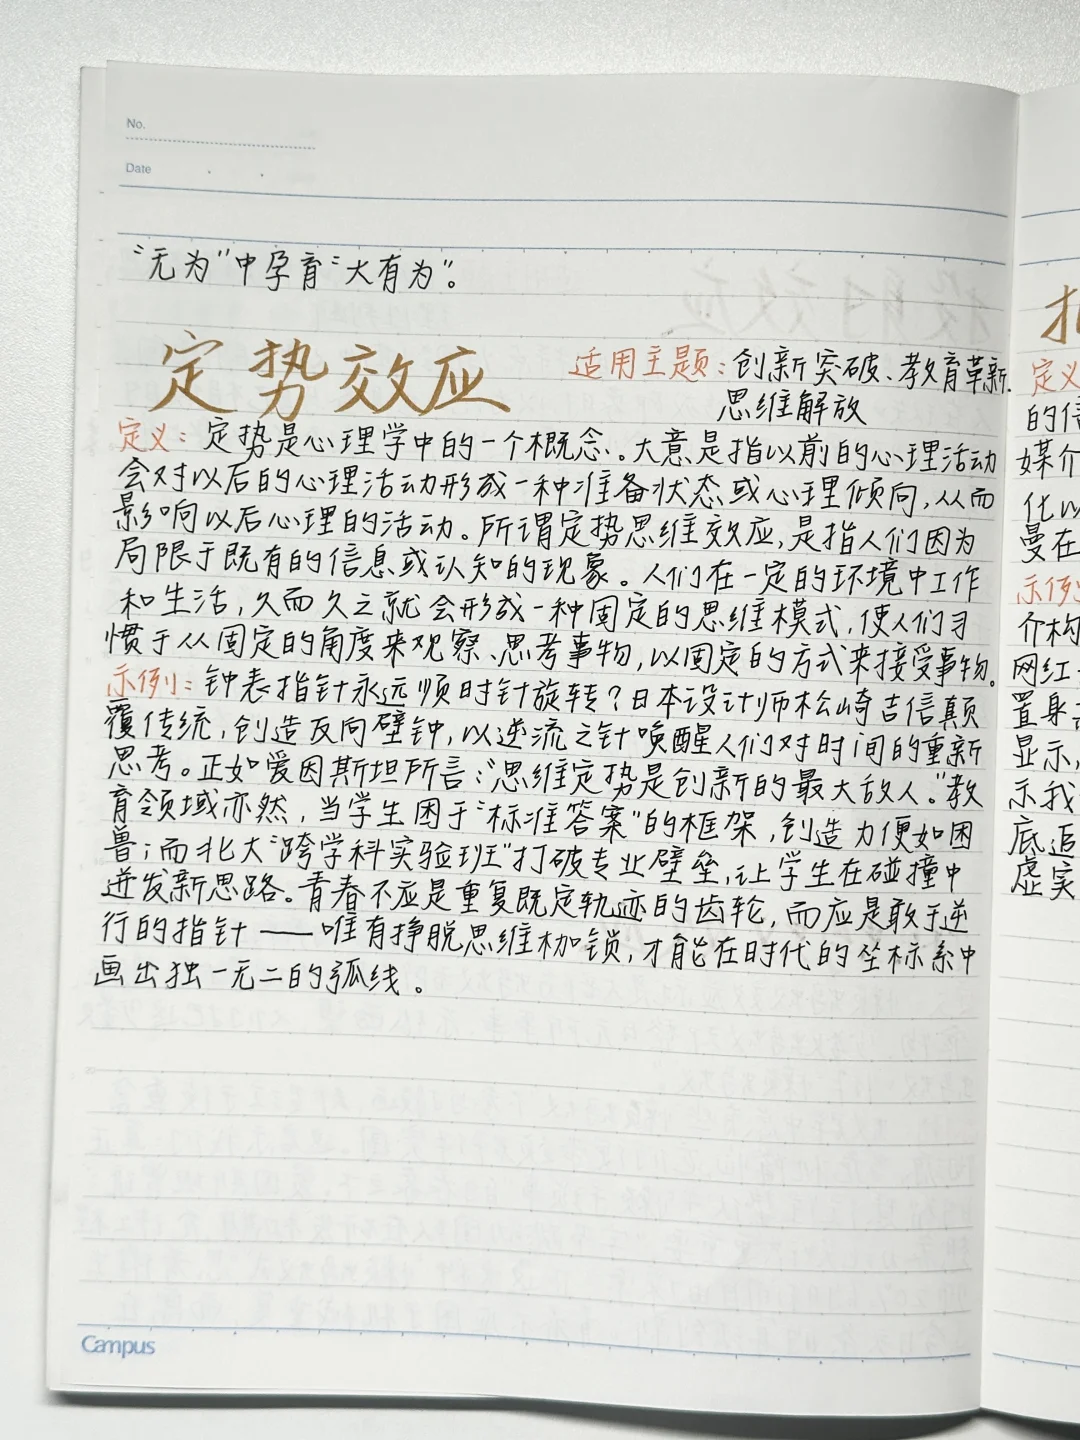 No.
Date
“无为”中孕育“大有为”。
定势效应
适用主题：创新突破、教育革新、
思维解放
定义：定势是心理学中的一个概念。大意是指以前的心理活动
会对以后的心理活动形成一种准备状态或心理倾向，从而
影响以后心理的活动。所谓定势思维效应，是指人们因为
局限于既有的信息或认知的现象。人们在一定的环境中工作
和生活，久而久之就会形成一种固定的思维模式，使人们习
惯于从固定的角度来观察、思考事物，以固定的方式来接受事物。
示例：钟表指针永远顺时针旋转？日本设计师松崎吉信颠
覆传统，创造反向壁钟，以逆流之针唤醒人们对时间的重新
思考。正如爱因斯坦所言：“思维定势是创新的最大敌人。”教
育领域亦然，当学生困于“标准答案”的框架，创造力便如困
兽；而北大“跨学科实验班”打破专业壁垒，让学生在碰撞中
迸发新思路。青春不应是重复既定轨迹的齿轮，而应是敢于逆
行的指针——唯有挣脱思维枷锁，才能在时代的坐标系中
画出独一无二的弧线。
Campus
定义
的信
媒介
化以
曼在
示例
介构
网红
置身
显示，
示我
底追
虚实